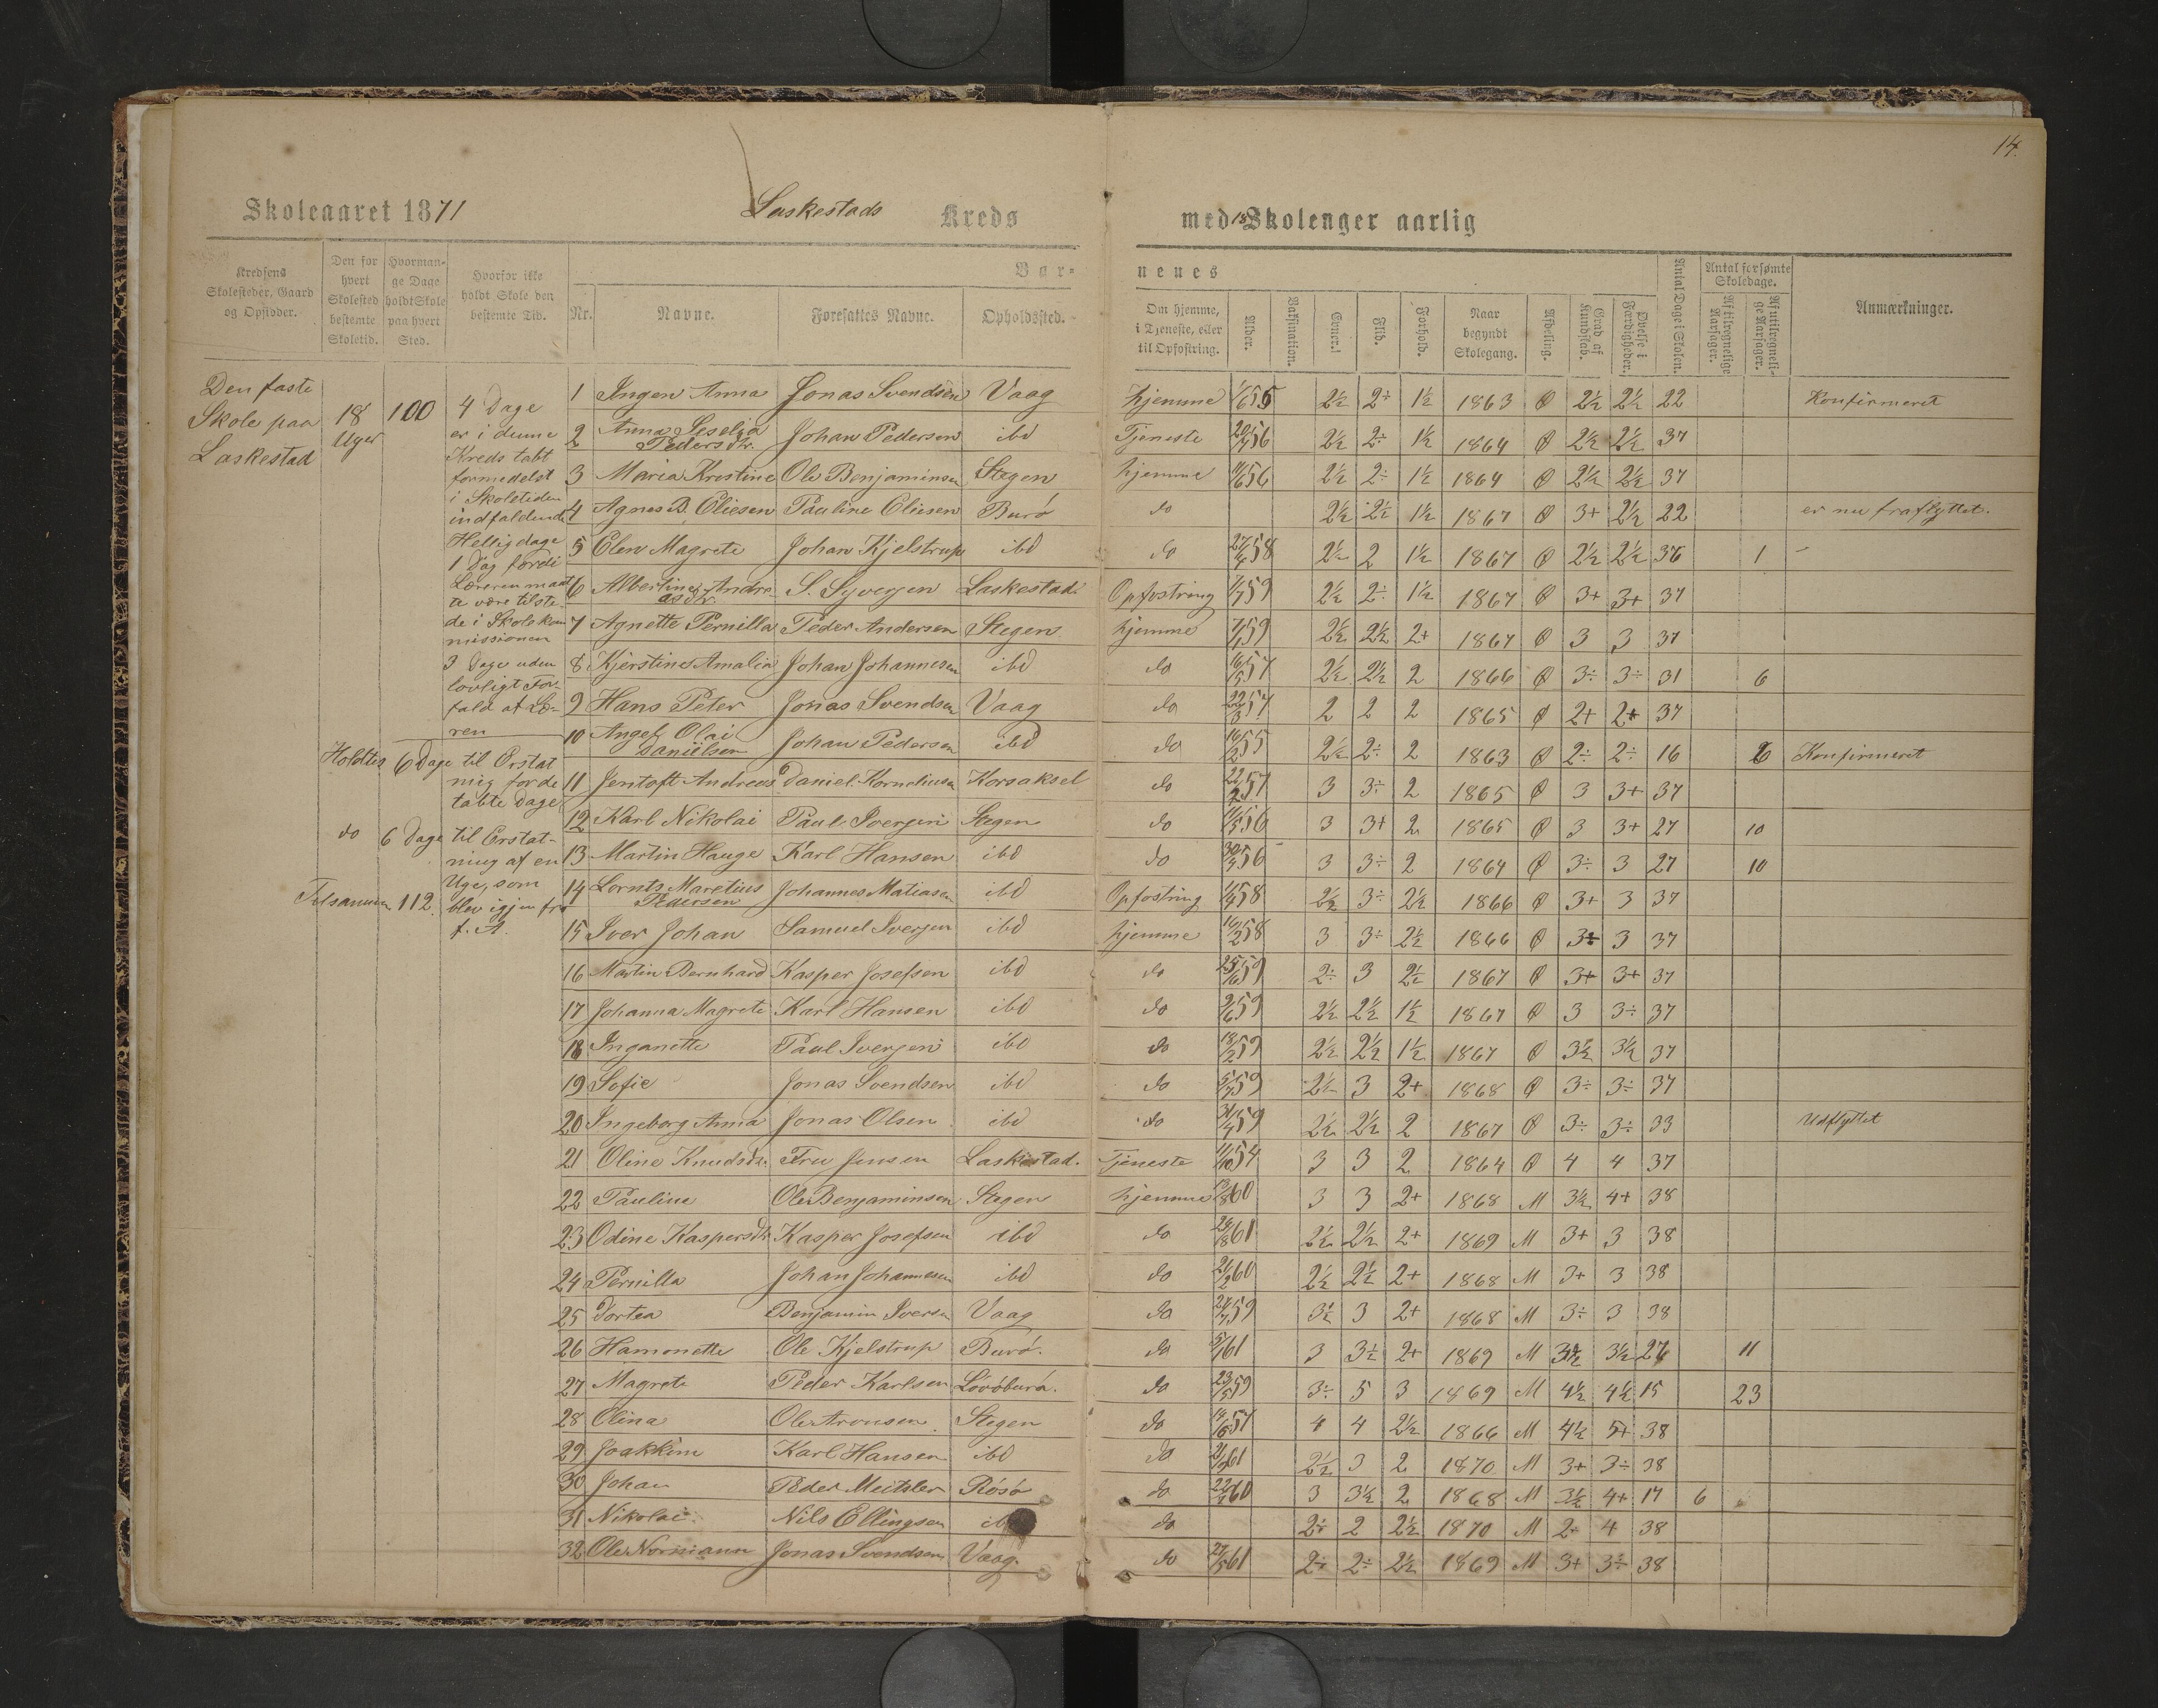 14.
Skoleaaret 1871 Laskestads Kreds med 18 Skoleuger aarlig
Kredsens Skolesteder, Gaard og Opsidder. | Den for hvert Skolested bestemte Skoletid. | Hvormange Dage holdt Skole paa hvert Sted. | Hvorfor ikke holdt Skole den bestemte Tid. | Børnenes
Nr. | Navne. | Foresattes Navne. | Opholdssted. | Om hjemme, i Tjeneste, eller til Opfostring. | Alder. | Vaksination. | Evner. | Flid. | Forhold. | Naar begyndt Skolegang. | Afdeling. | Grad af Kundskab. | Øvelse i Færdigheder. | Antal Dage i Skolen. | Antal forsømte Skoledage. | Af tilregnelige Aarsager. | Af utilregnelige Aarsager. | Anmærkninger.
Den faste
Skole paa
Laskestad
18
Uger
100
4 Dage
er i denne
Kreds tabt
formedelst
i Skoletiden
indfaldende
Helligdage
1 Dag fordi
Læreren maat
te være tilste-
de i Skolekom
missionen
3 Dage uden
lovligt For-
fald af Læ-
ren
Holdtes 6 Dage til Erstat
ning for de
tabte Dage
do 6 Dage til Erstat-
ning af en
Uge, som
blev igjen fra
f. A.
Tilsammen 112.
1 Ingen Anna | Jonas Svendsen | Vaag | hjemme | 1/6 55 | 2½ | 2÷ | 1½ | 1863 | Ø | 2½ | 2½ | 22 | Konfirmeret
2 Anna Seselia Pedersdtr. | Johan Pedersen | ibd | Tjeneste | 20/7 56 | 2½ | 2÷ | 1½ | 1864 | Ø | 2½ | 2½ | 37
3 Maria Krestine | Ole Benjaminsen | Stegen | hjemme | 11/6 56 | 2½ | 2÷ | 1½ | 1864 | Ø | 2½ | 2½ | 37
4 Agnes B. Eliesen | Pauline Eliesen | Burø | do | 2½ | 2½ | 1½ | 1867 | Ø | 3+ | 2½ | 22 | er nu fraflyttet.
5 Elen Magrete | Johan Kjelstrup | ibd | do | 27/4 58 | 2½ | 2 | 1½ | 1867 | Ø | 2½ | 2½ | 36 | 1
6 Albertine Andreasdtr. | S. Syversen | Laskestad | Opfostring | 1/7 59 | 2½ | 2÷ | 1½ | 1867 | Ø | 3+ | 3+ | 37
7 Agnette Pernilla | Peder Andersen | Stegen | hjemme | 7/1 59 | 2½ | 2½ | 2+ | 1867 | Ø | 3 | 3 | 37
8 Kjerstine Amalia | Johan Johannesen | ibd | do | 16/5 57 | 2½ | 2½ | 2 | 1866 | Ø | 3÷ | 3÷ | 31 | 6
9 Hans Peter | Jonas Svendsen | Vaag | do | 22/3 57 | 2 | 2 | 2 | 1865 | Ø | 2+ | 2+ | 37
10 Angel Olai Danielsen | Johan Pedersen | ibd | do | 16/2 55 | 2½ | 2÷ | 2 | 1863 | Ø | 2÷ | 2÷ | 16 | 6 | Konfirmeret
11 Jentoft Andreas | Daniel Korneliusen | Korsaksel | do | 22/2 57 | 3 | 3÷ | 2 | 1865 | Ø | 3 | 3+ | 37
12 Karl Nikolai | Paul Iversen | Stegen | do | 11/5 56 | 3 | 3+ | 2 | 1865 | Ø | 3 | 3+ | 27 | 10
13 Martin Hauge | Karl Hansen | ibd | do | 30/7 56 | 3 | 3÷ | 2 | 1864 | Ø | 3÷ | 3 | 27 | 10
14 Lornts Maretius Pedersen | Johannes Matiasen | ibd | Opfostring | 1/4 58 | 2½ | 3÷ | 2½ | 1866 | Ø | 3+ | 3 | 37
15 Iver Johan | Samuel Iversen | ibd | hjemme | 16/2 58 | 3 | 3÷ | 2½ | 1866 | Ø | 3+ | 3 | 37
16 Martin Bernhard | Kasper Josefsen | ibd | do | 25/6 59 | 2÷ | 3 | 2½ | 1867 | Ø | 3+ | 3+ | 37
17 Johanna Magrete | Karl Hansen | ibd | do | 2/6 59 | 2½ | 2½ | 1½ | 1867 | Ø | 3 | 3÷ | 37
18 Inganette | Paul Iversen | ibd | do | 18/2 59 | 2½ | 2½ | 1½ | 1867 | Ø | 3½ | 3½ | 37
19 Sofie | Jonas Svendsen | ibd | do | 5/7 59 | 2½ | 3 | 2+ | 1868 | Ø | 3÷ | 3÷ | 37
20 Ingeborg Anna | Jonas Olsen | ibd | do | 31/7 59 | 2½ | 2½ | 2 | 1867 | Ø | 3÷ | 3÷ | 33 | Udflyttet
21 Oline Knudsdtr. | Fru Jensen | Laskestad. | Tjeneste | 11/10 54 | 3 | 3 | 2 | 1864 | Ø | 4 | 4 | 37
22 Pauline | Ole Benjaminsen | Stegen | hjemme | 13/8 60 | 3 | 3 | 2+ | 1868 | M | 3½ | 4+ | 38
23 Odine Kaspersdtr. | Kasper Josefsen | ibd | do | 61 | 2½ | 2½ | 2+ | 1869 | M | 3+ | 3 | 38
24 Pernilla | Johan Johannesen | ibd | do | 21/2 60 | 2½ | 2½ | 2+ | 1868 | M | 3+ | 3 | 38
25 Dortea | Benjamin Iversen | Vaag | do | 27/7 59 | 3½ | 3 | 2+ | 1868 | M | 3÷ | 3 | 38
26 Hamonette | Ole Kjelstrup | Burø. | do | 5/1 61 | 3 | 3½ | 2+ | 1869 | M | 3½ | 3½ | 27 | 11
27 Magrete | Peder Karlsen | Løvøburø. | do | 23/5 59 | 3÷ | 5 | 3 | 1869 | M | 4½ | 4½ | 15 | 23
28 Olina | Ole Aronsen | Stegen | do | 57 | 4 | 4 | 2½ | 1866 | M | 4½ | 5+ | 38
29 Joakkim | Karl Hansen | ibd | do | 61 | 2½ | 3 | 2 | 1870 | M | 3+ | 3÷ | 38
30 Johan | Peder Meitsler | Røsø | do | 60 | 3 | 3½ | 2 | 1868 | M | 3½ | 4+ | 17 | 6
31 Nikolai | Nils Ellingsen | do | 2÷ | 2 | 2½ | 1870 | M | 2÷ | 4 | 38
32 Ole Normann | Jonas Svendsen | Vaag. | do | 27/5 61 | 2÷ | 2÷ | 2½ | 1869 | M | 3+ | 3½ | 38